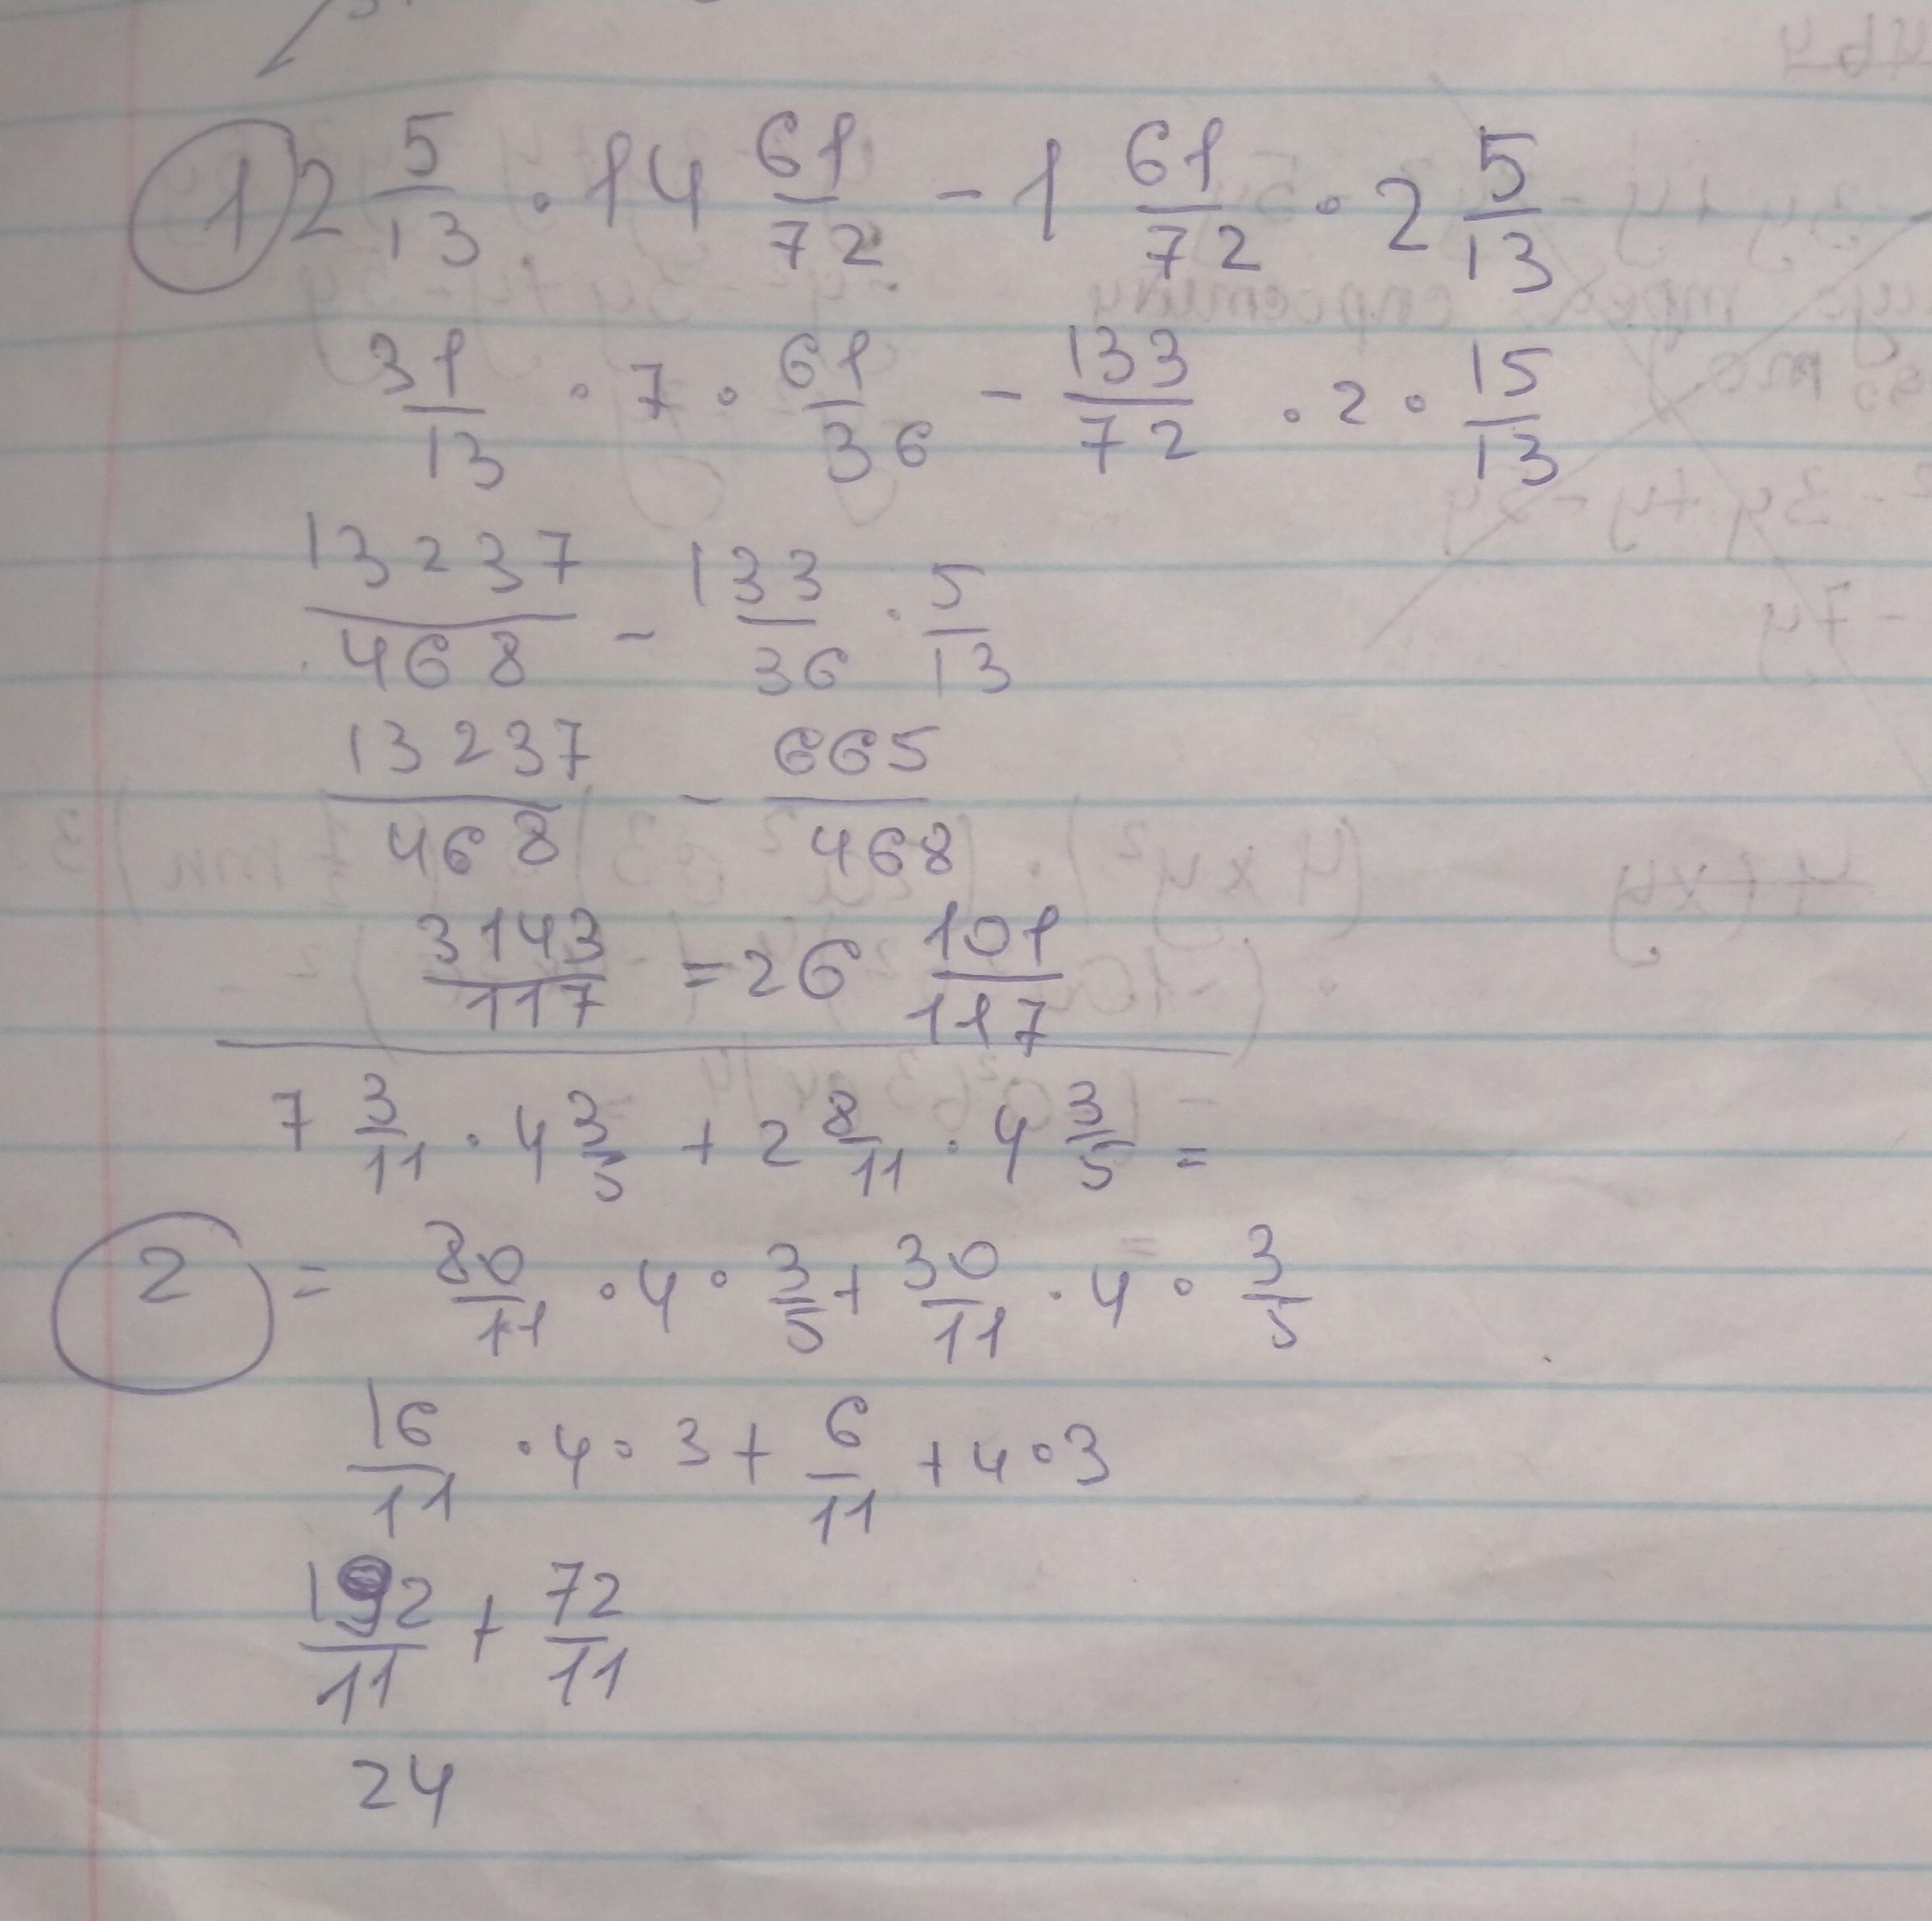 1) 2 5/13 · 14 61/72 - 1 61/72 · 2 5/13
31/13 · 7 · 61/36 - 133/72 · 2 · 15/13
13237/468 - 133/36 · 5/13
13237/468 - 665/468
3143/117 = 26 101/117
7 3/11 · 4 3/5 + 2 8/11 · 4 3/5 =
2 = 80/11 · 4 · 3/5 + 30/11 · 4 · 3/5
16/11 · 4 · 3 + 6/11 + 4 · 3
192/11 + 72/11
24